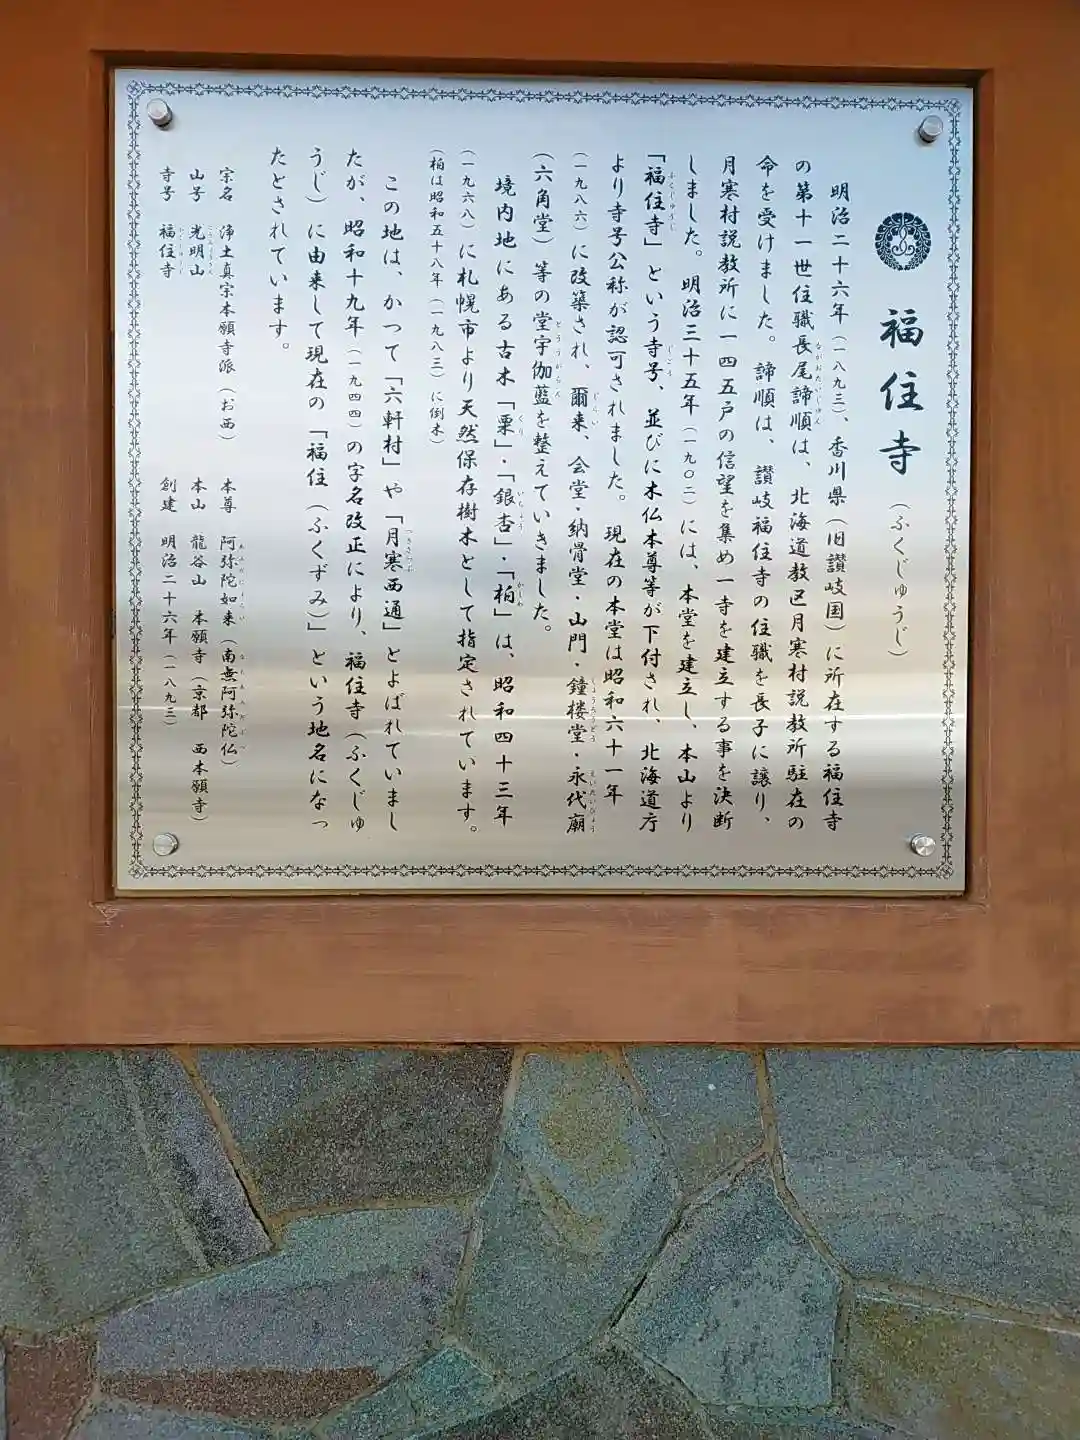 福住寺(ふくじゅうじ)
明治二十六年(一八九三)、香川県(旧讃岐国)に所在する福住寺
の第十一世住職長尾諦順は、北海道教区月寒村説教所駐在の
命を受けました。諦順は、讃岐福住寺の住職を長子に譲り、
月寒村説教所に一四五戸の信望を集め一寺を建立する事を決断
しました。明治三十五年(一九〇二)には、本堂を建立し、本山より
「福住寺」という寺号、並びに木仏本尊等が下付され、北海道庁
より寺号公称が認可されました。現在の本堂は昭和六十一年
(一九八六)に改築され、爾来、会堂・納骨堂・山門・鐘楼堂・永代廟
(六角堂)等の堂宇伽藍を整えていきました。
境内地にある古木「栗」・「銀杏」・「柏」は、昭和四十三年
(一九六八)に札幌市より天然保存樹木として指定されています。
(柏は昭和五十八年(一九八三)に倒木)
この地は、かつて「六軒村」や「月寒西通」とよばれていまし
たが、昭和十九年(一九四四)の字名改正により、福住寺(ふくじゅ
うじ)に由来して現在の「福住(ふくずみ)」という地名になっ
たとされています。
宗名 浄土真宗本願寺派(お西) 本尊 阿弥陀如来(南無阿弥陀仏)
山号 光明山 本山 龍谷山 本願寺(京都 西本願寺)
寺号 福住寺 創建 明治二十六年(一八九三)